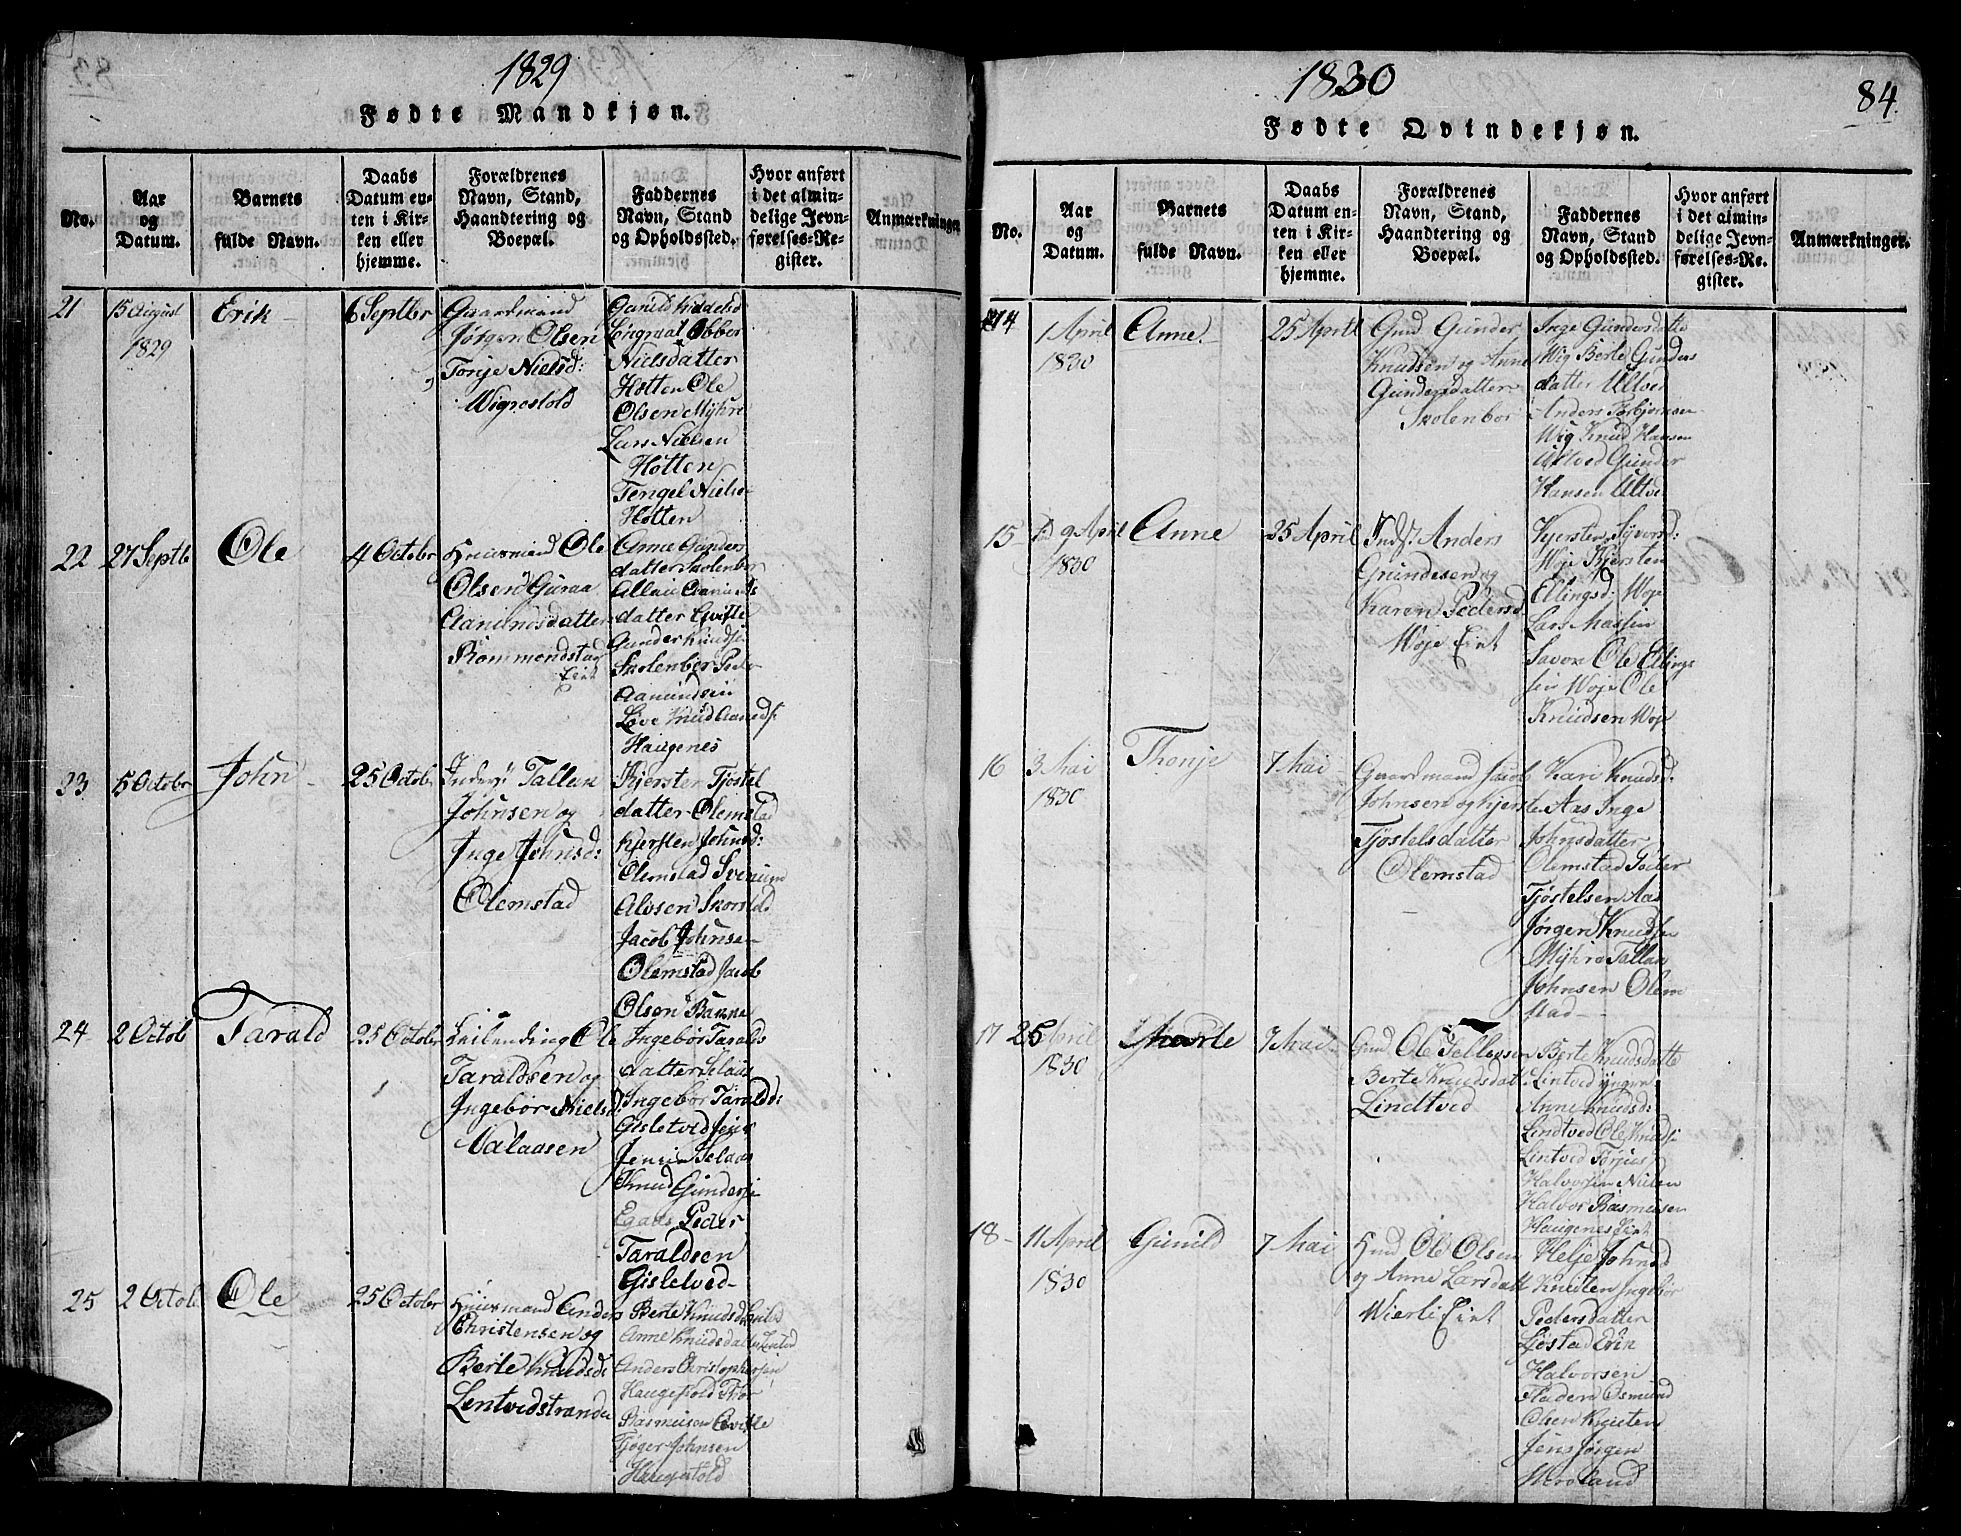 1829
Fødte Mandkjøn.
No.
Aar
og
Datum.
Barnets
fulde Navn.
Daabs
Datum en-
ten i Kir-
ken eller
hjemme.
Forældrenes
Navn, Stand,
Haandtering og
Boepæl.
Faddernes
Navn, Stand
og Opholdssted.
Hvor anført
i det almin-
delige Jevn-
førelses-Re-
gister.
Anmærkninger
21
15 August
1829
Erik
6 Septbr
Gaardmand
Jørgen Olsen
Torje Nielsd:
Wigrestold
Nielsdatter
Hotten Ole
Olsen Myhre
Lars Nielsen
Hotten
Tengel Nielse
Hotten
22
27 Septb
Ole
4 Octobr
Huusmand Ole
Olsen Guroa
Aamundsdatter
Rommundstad
Eiet
Anne Gunders
datter Skolenbor
datter Qviste
Gunder Knuds
Skolenber Peder
Aamundsen
Løve Knud
Haugenes
23
5 Octobr
John
25 Octobr
Inders Tallak
Johnsen og
Inge Johnsd:
Olemstad
Kjersten Tjøstel
datter Olemstad
Kjersten Johnsd:
Olemstad
Alvsen
Jacob Johnsen
Olemstad Jacob
Olsen Bakke
24
2 Octob
Tarald
25 Octobr
Leilending Ole
Taraldsen og
Ingebor Niels
Valaasen
Ingebor Taralds
datter Selaas
Ingebor Taraldd:
Gisletved
Jensen Selaas
Knud Gunders
Egaas Peder
Taraldsen
Gisletved
25
2 Octob
Ole
25 Octobr
Huusmand Anders
Christensen og
Berte Knudsd
Lentvedstranden
Berte Knudsd
Anne Knudsdatter
Anders Christophersen
Haugefold Thor
Rasmusen Qviste
Tjøger Johnsen
Haugefold
1830
84
Fødte Qvindekjøn.
No.
Aar
og
Datum.
Barnets
fulde Navn.
Daabs
Datum en-
ten i Kir-
ken eller
hjemme.
Forældrenes
Navn, Stand,
Haandtering og
Boepæl.
Faddernes
Navn, Stand
og Opholdssted.
Hvor anført
i det almin-
delige Jevn-
førelses-Re-
gister.
Anmærkninger.
14
1 April
1830
Anne
25 April
Gmd Gunder
Knudsen og Anne
Gundersdatter
Skolenbor
Inge Gundersdatte
Wig Berte Gunders
datter Ultve
Anders Torbjørnsen
Wig Knud Hansen
Ultved Gunder
Hansen Ultve
15
9 April
1830
Anne
25 April
Indst Anders
Gundesen og
Karen Pedersd
Woje Eiet
Kjersten Syvorsd:
Woje Kjersten
Ellingsd: Woje
Lars Massen
Savon Ole Ellings
sen Woje Ole
Knudsen Woje
16
3 Mai
1830
Thonje
7 Mai
Gaardmand Jacob
Johnsen og Kjerste
Tjøstelsdatter
Olemstad
Kari Knudsd:
Aas Inge
Johnsdatter
Olemstad Peder
Tjøstelsen Aas
Jørgen Knudsen
Myhre Tallak
Johnsen Olem
stad
17
25 April
1830
7 Mai
Gmd Ole Tellefsen
Berte Knudsdatt
Lindtved
Berte Knudsdatte
Lintved
Anne Knudsd:
Lindtved Ole Knuds
Lintved Torjus
Halvorsen
Halvor Rasmusen
Haugenes Eiet
18
11 April
1830
Gunild
7 Mai
Hmd Ole Olsen
og Anne Larsdatt
Wierli Eiet
Helje Johnsd
Knutlen Ingebor
Pedersdatter
Ljøstad Erik
Halvorsen
Fladen Osmund
Olsen
Jens Jørgen